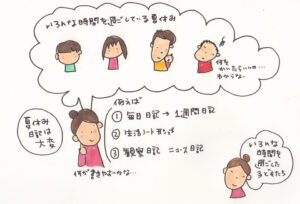 いろんな時間を過ごしている夏休み
何を
かいたらいいの…
わからない
夏休み
日記は
大変
例えば
① 毎日日記 → 1週間日記
② 生活ノート
③ 観察日記 ニュース日記
何が書きやすいかな…
いろんな
時間を
過ごした
子どもたち